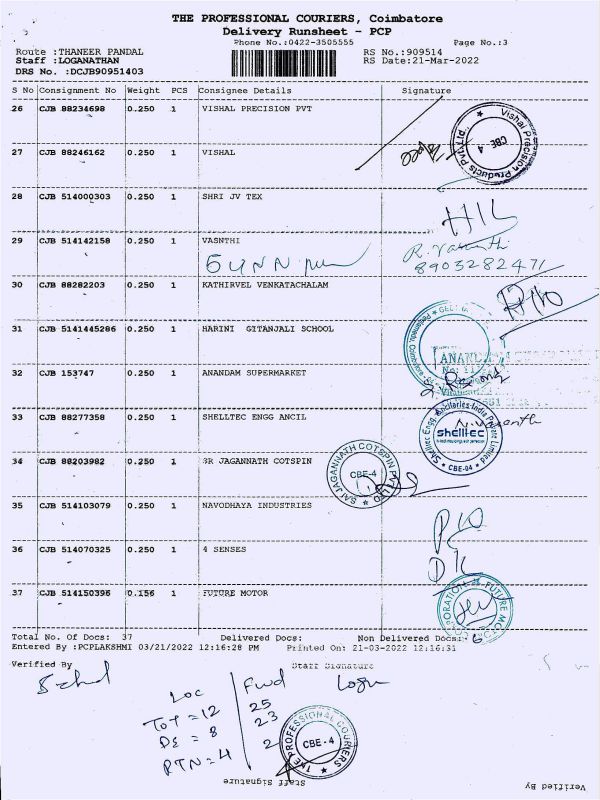 THE PROFESSIONAL COURIERS, Coimbatore
Delivery Runsheet - PCP
Phone No.:0422-3505555 Page No.:3
Route :THANEER PANDAL RS No.:909514
Staff :LOGANATHAN RS Date:21-Mar-2022
DRS No. :DCJB90951403
S No Consignment No Weight PCS Consignee Details Signature
26 CJB 88234698 0.250 1 VISHAL PRECISION PVT
Vishal Precision Products Pvt.Ltd. CBE 4
27 CJB 88246162 0.250 1 VISHAL
28 CJB 514000303 0.250 1 SHRI JV TEX
29 CJB 514142158 0.250 1 VASNTHI
R. Vasanthi
8903282471
30 CJB 88282203 0.250 1 KATHIRVEL VENKATACHALAM
31 CJB 5141445286 0.250 1 HARINI GITANJALI SCHOOL
32 CJB 153747 0.250 1 ANANDAM SUPERMARKET
33 CJB 88277358 0.250 1 SHELLTEC ENGG ANCIL
Shelltec Engg. Ancilaries India Private Limited shelltec CBE-04
34 CJB 88203982 0.250 1 SR JAGANNATH COTSPIN
SAI JAGANNATH COTSPIN PVT LTD CBE-4
35 CJB 514103079 0.250 1 NAVODHAYA INDUSTRIES
36 CJB 514070325 0.250 1 4 SENSES
37 CJB 514150396 0.156 1 FUTURE MOTOR
Total No. Of Docs: 37 Delivered Docs: Non Delivered Docs: 6
Entered By :PCPLAKSHMI 03/21/2022 12:16:28 PM Printed On: 21-03-2022 12:16:31
Verified By Staff Signature
Loc Fwd
Tot = 12 25
DE = 8 23
RTN = 4 2
THE PROFESSIONAL COURIERS CBE-4
Staff Signature
Verified By